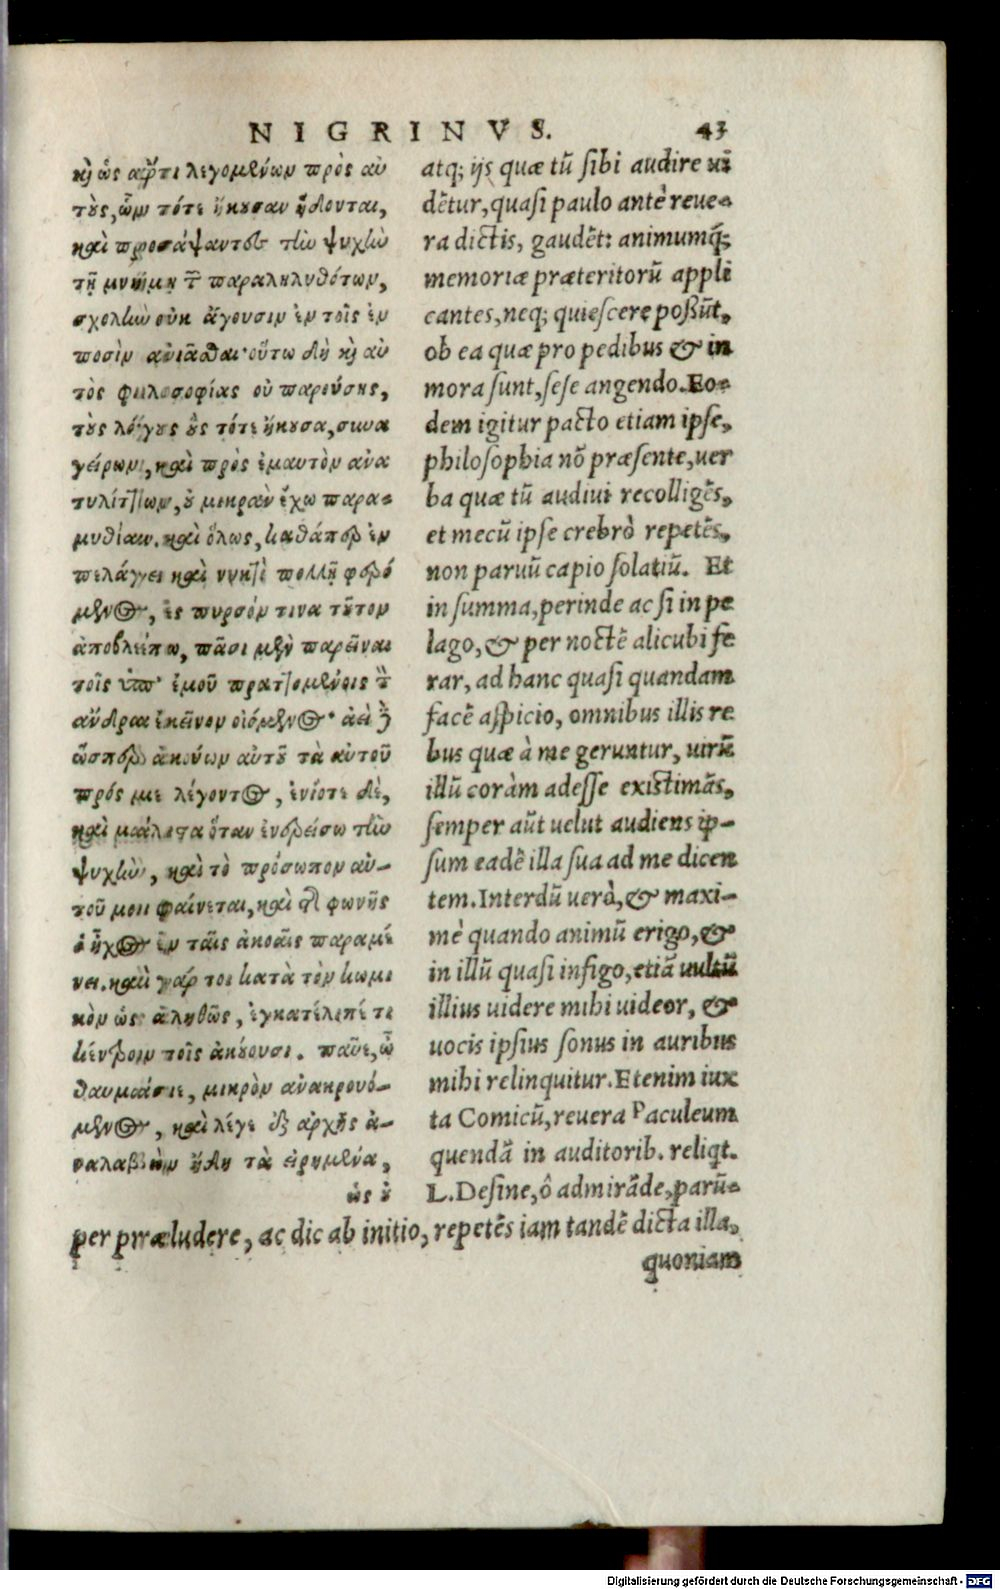 NIGRINVS. 43
κὶ ὡς ἄρτι λεγομένων πρὸς αὐ
τοὺς, ὧν τότε ἤκουσαν ἥδονται,
καὶ προσάψαντες τὴν ψυχὴν
τῇ μνήμῃ τῶν παραληλυθότων,
σχολὴν οὐκ ἄγουσιν ἐν τοῖς ἐν
ποσὶν ἀνιᾶσθαι· οὕτω δὴ κὶ αὐ
τὸς φιλοσοφίας οὐ παρούσης,
τοὺς λόγους οὓς τότε ἤκουσα, συνα
γείρων, καὶ πρὸς ἐμαυτὸν ἀνα
τυλίττων, οὐ μικρὰν ἔχω παρα-
μυθίαν. καὶ ὅλως, καθάπερ ἐν
πελάγει καὶ νυκτὶ πολλῇ φερό
μενος, ἐς πυρσόν τινα τοῦτον
ἀποβλέπω, πᾶσι μὲν παρεῖναι
τοῖς ὑπ' ἐμοῦ πραττομένοις τὸν
ἄνδρα ἐκεῖνον οἰόμενος· ἀεὶ δὲ
ὥσπερ ἀκούων αὐτοῦ τὰ αὐτοῦ
πρός με λέγοντος, ἐνίοτε δὲ,
καὶ μάλιστα ὅταν ἐνερείσω τὴν
ψυχὴν, καὶ τὸ πρόσωπον αὐ-
τοῦ μοι φαίνεται, καὶ τῆς φωνῆς
ὁ ἦχος ἐν ταῖς ἀκοαῖς παραμέ
νει. καὶ γάρ τοι κατὰ τὸν κωμι
κὸν ὡς ἀληθῶς, ἐγκατέλειπέ τι
κέντρον τοῖς ἀκούουσι. παῦε, ὦ
θαυμάσιε, μικρὸν ἀνακρουό-
μενος, καὶ λέγε ἐξ ἀρχῆς ἀ-
ναλαβὼν ἤδη τὰ εἰρημένα,
ὡς οὐ
atq; ijs quæ tū sibi audire ui
dētur, quasi paulo antè reue-
ra dictis, gaudēt: animumq́;
memoriæ præteritorū appli
cantes, neq; quiescere possūt,
ob ea quæ pro pedibus & in
mora sunt, sese angendo. Eo-
dem igitur pacto etiam ipse,
philosophia nō præsente, uer
ba quæ tū audiui recolligēs,
et mecū ipse crebrò repetēs,
non paruū capio solatiū. Et
in summa, perinde ac si in pe
lago, & per noctē alicubi fe
rar, ad hanc quasi quandam
facē aspicio, omnibus illis re
bus quæ à me geruntur, uirū
illū coràm adesse existimās,
semper aūt uelut audiens ip-
sum eadē illa sua ad me dicen
tem. Interdū uerò, & maxi-
mè quando animū erigo, &
in illū quasi infigo, etiā uultū
illius uidere mihi uideor, &
uocis ipsius sonus in auribus
mihi relinquitur. Etenim iux
ta Comicū, reuera Paculeum
quendā in auditorib. reliqt.
L. Desine, ô admirāde, parū-
per præludere, ac dic ab initio, repetēs iam tandē dicta illa,
quoniam
Digitalisierung gefördert durch die Deutsche Forschungsgemeinschaft - DFG